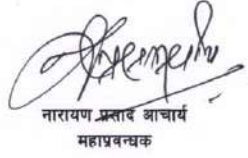 नारायण प्रसाद आचार्य
महाप्रवन्धक